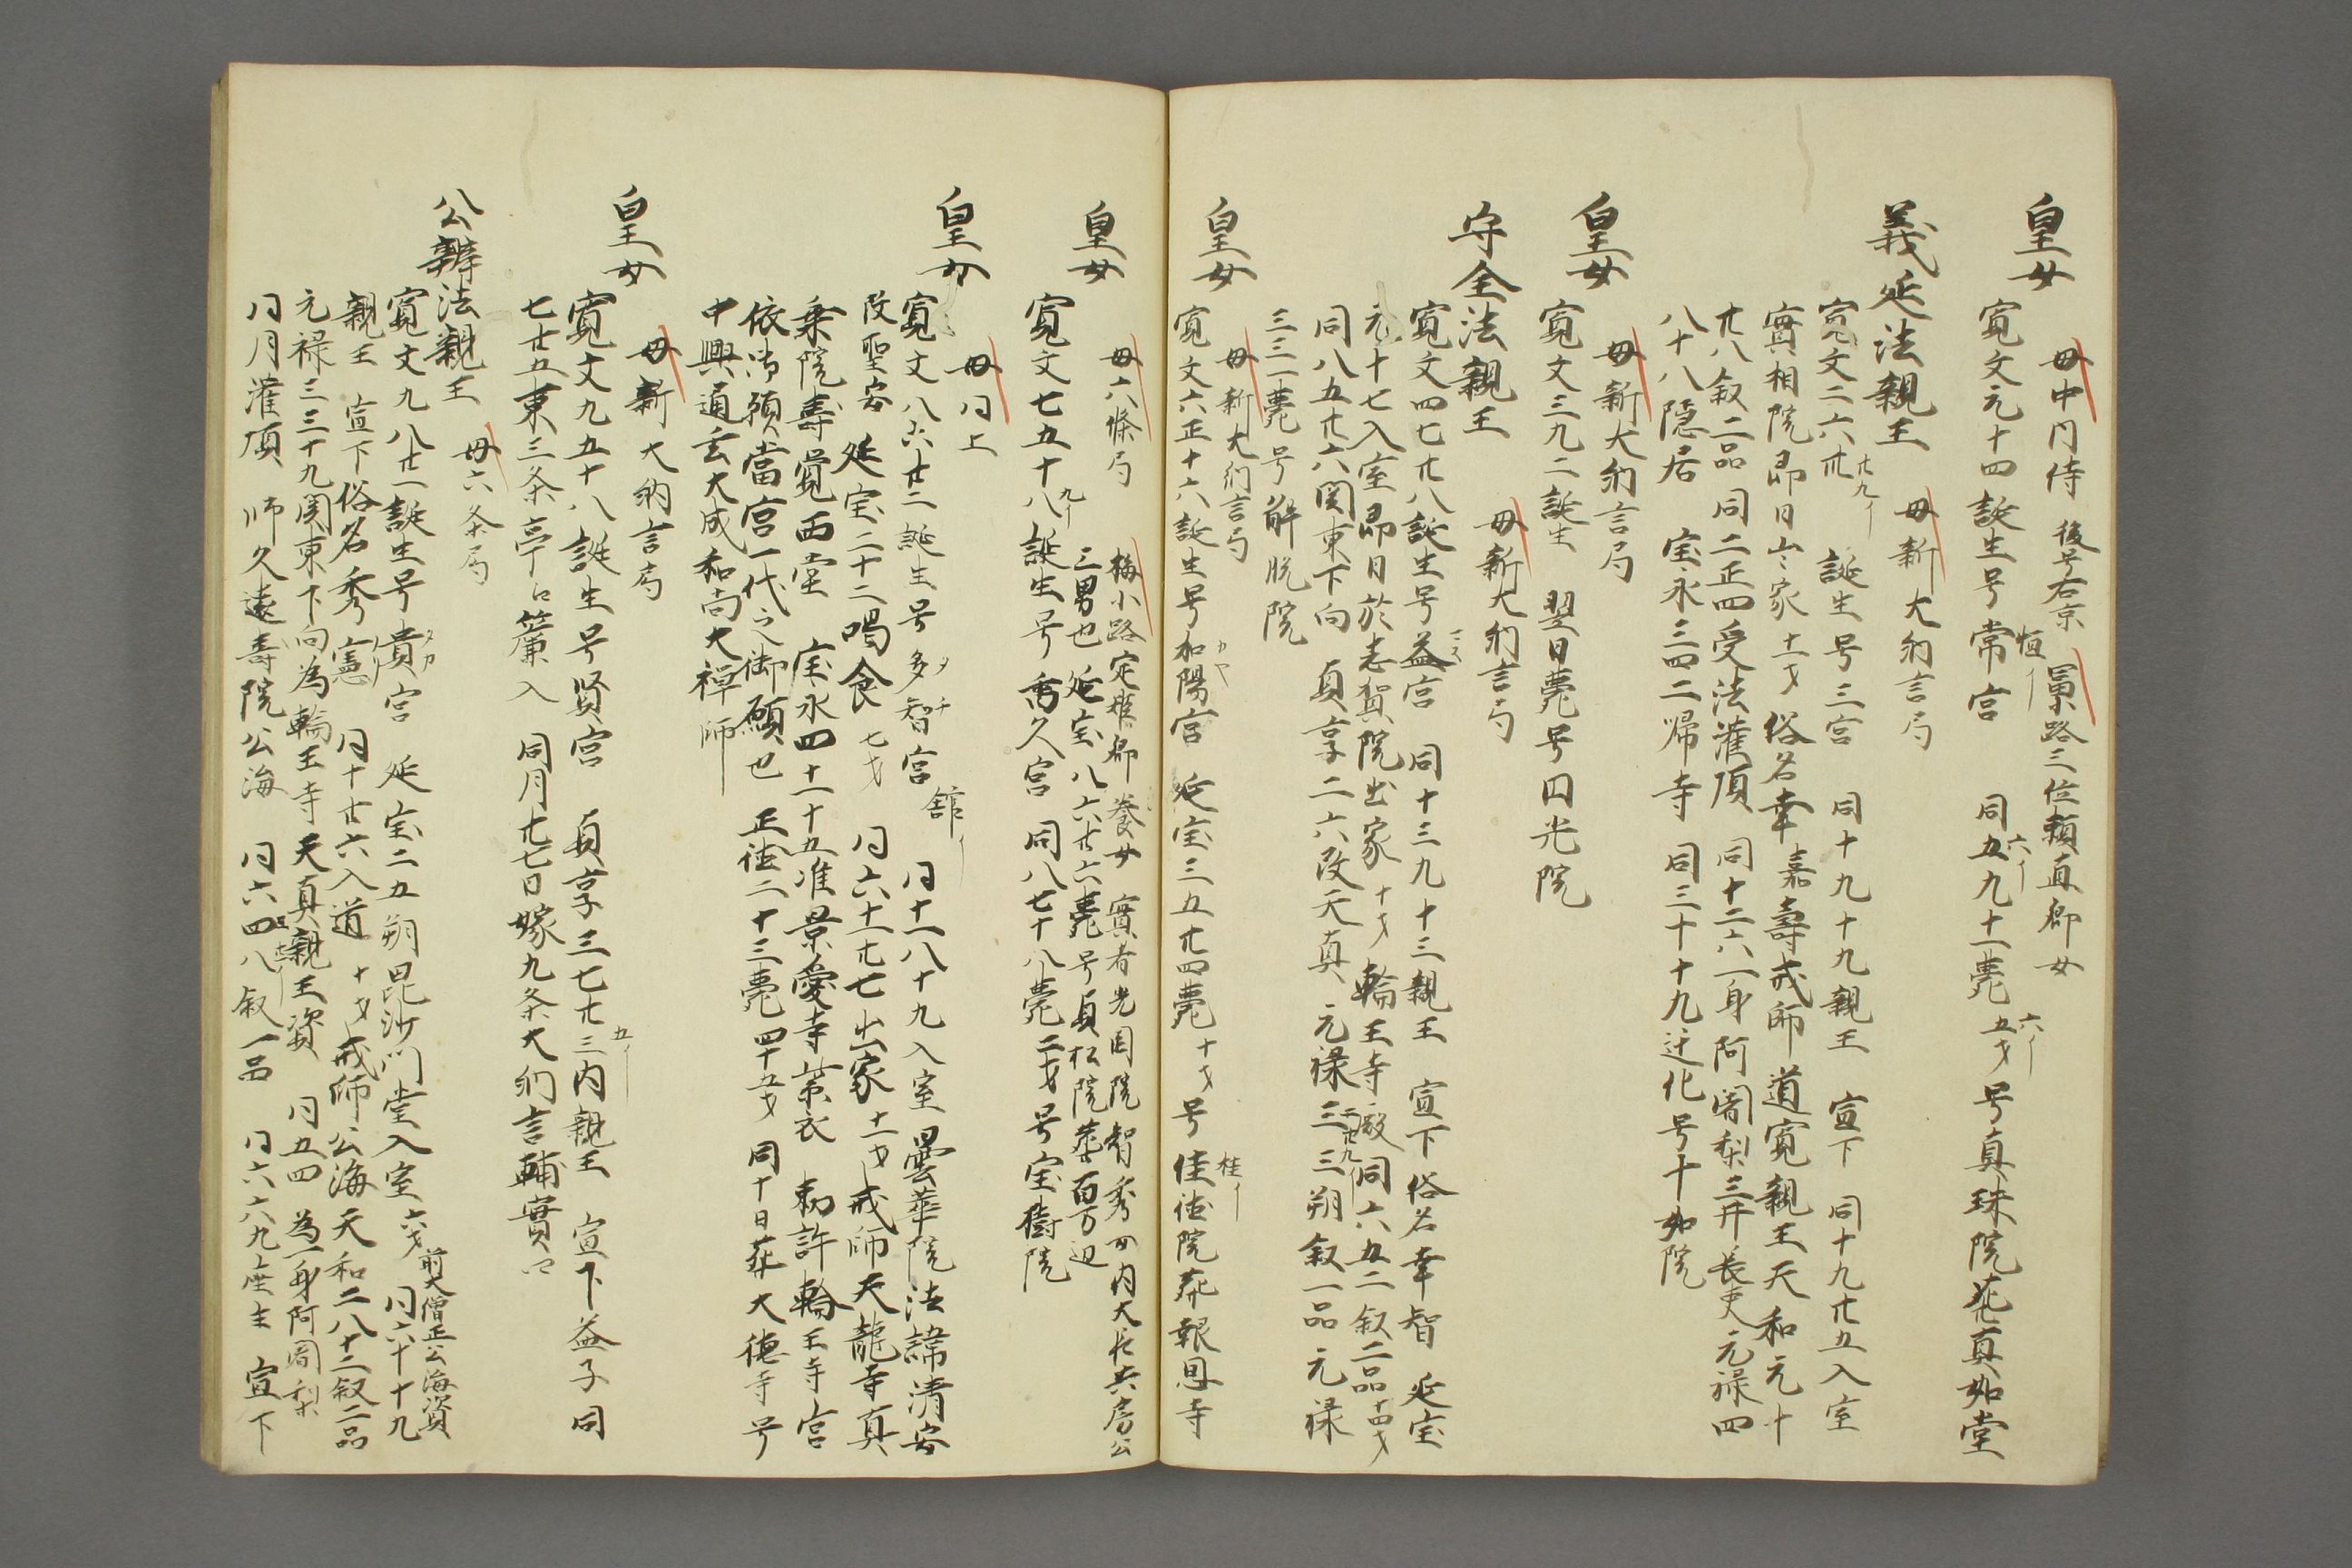 皇女
母中内侍 後号右京 冨小路三位頼直卿女
寛文元十四誕生号常宮 同五九十一薨 五才 号真珠院葬真如堂
恒イ
六イ
六イ
義延法親王
母新大納言局
寛文二六廿 誕生号三宮 同十九十九親王 宣下 同十九廿五入室
廿九イ
實相院即日出家 十一才 俗名幸嘉壽戒師道寛親王天和元十
廿八叙二品 同二正四受法灌頂 同十二六一身阿闍梨三井長吏元禄四
八十八隠居 宝永三四二帰寺 同三十十九迁化号十如院
皇女
母新大納言局
寛文三九二誕生 翌日薨号円光院
守全法親王
母新大納言局
寛文四七廿八誕生号益宮 同十三九十三親王 宣下俗名幸智 延宝
元十七入室即日於志賀院出家 十才 輪王寺殿同六五二叙二品 十四才
同八五廿六関東下向 貞享二六改天真 元禄三三朔叙一品 元禄
二廿九イ
三三一薨号解脱院
皇女
母新大納言局
寛文六正十六誕生号加陽宮 延宝三五廿四薨 十才 号佳徳院葬報恩寺
カヤ
桂イ
皇女
母六條局 梅小路定矩卿養女 實者光園院智秀四内大臣共房公
三男也 延宝八六廿六薨号貞松院葬百万辺
寛文七五十八誕生号 久宮 同八七十八薨 二才 号宝樹院
九イ
皇女
母同上
寛文八六廿二誕生号多智宮 同十一八十九入室曇華院法諱清安
タチ
舘イ
改聖安 延宝二十二喝食 七才 同六十一廿七出家 十一才 戒師天龍寺真
乗院壽覚西堂 宝永四十一十五准景愛寺紫衣 勅許輪王寺宮
依御願當宮一代之御願也 正徳二十三薨 四十五才 同十日葬大徳寺号
中興通玄大成和尚大禅師
皇女
母新大納言局
寛文九五十八誕生号賢宮 貞享三七廿三内親王 宣下益子同
五イ
七廿五東三条亭簾入 同月廿七日嫁九条大納言輔實公
公辨法親王
母六条局
寛文九八廿一誕生号貴宮 延宝二五朔毘沙門堂入室 六才 前大僧正公海資 同六十十九
タカ
親王 宣下俗名秀憲 同十廿六入道 十才 戒師公海天和二八十二叙二品
元禄三三十九関東下向為輪王寺天真親王資 同五四為一身阿闍梨
同月灌頂 師久遠壽院公海 同六四八叙一品 同六六九座主 宣下